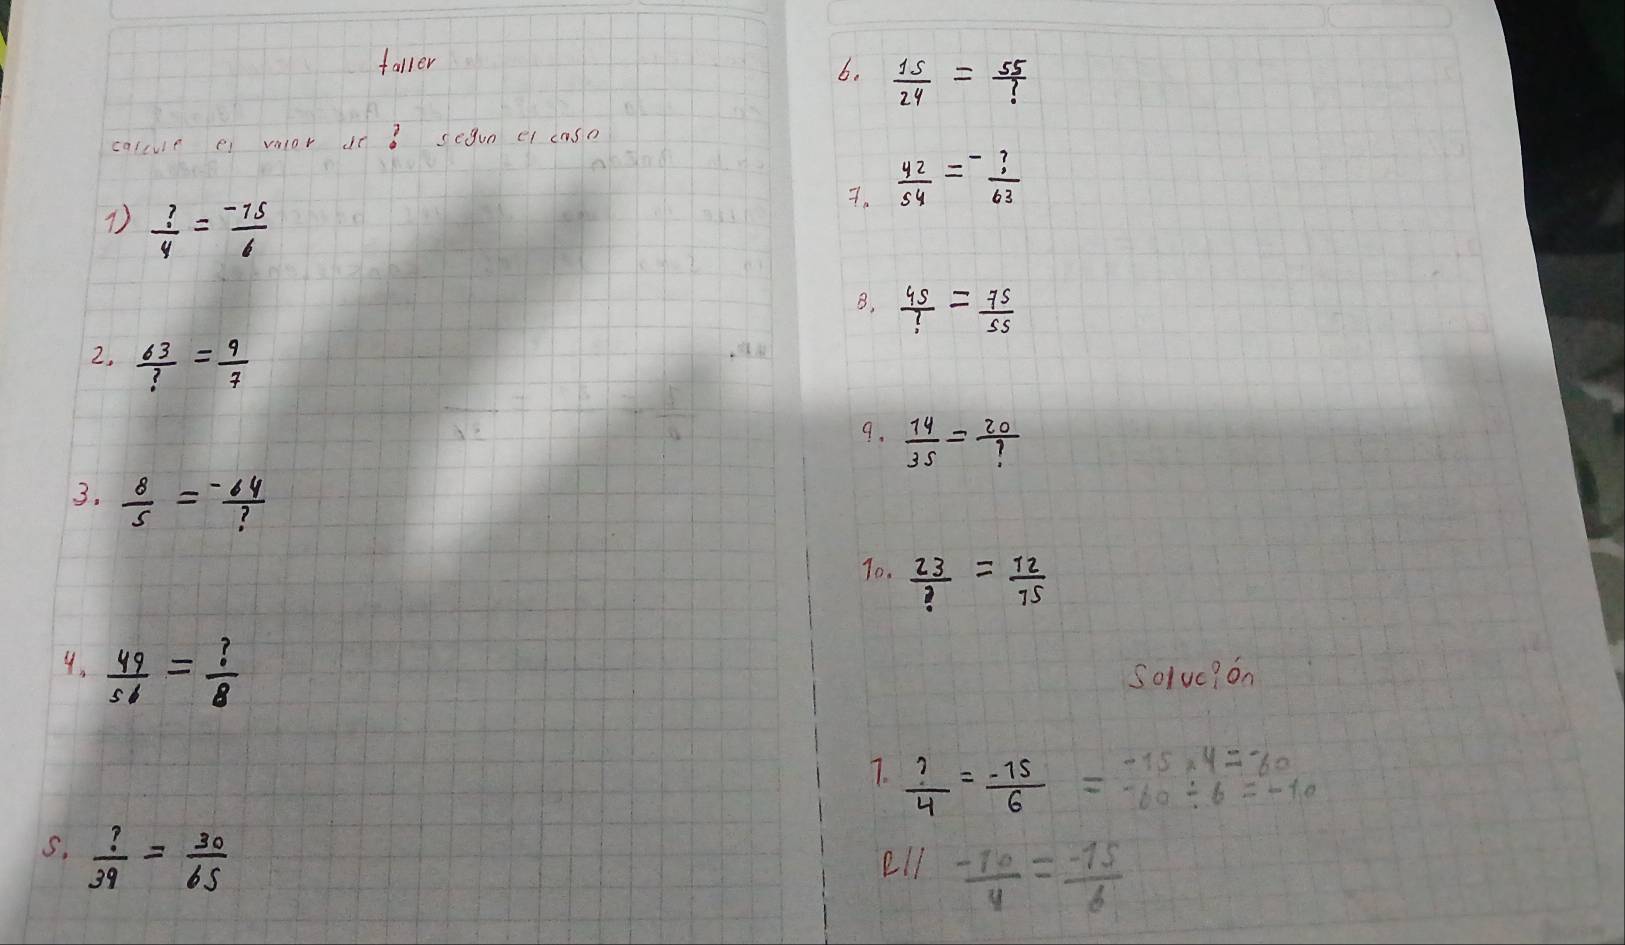 taller
calcule el valor de ? segun el caso
1) ?/4 = -15/6
2. 63/? = 9/7
3. 8/5 = -64/?
4. 49/56 = ?/8
5. ?/39 = 30/65
6. 15/24 = 55/?
7. 42/54 = -?/63
8. 45/? = 75/55
9. 14/35 = 20/?
10. 23/? = 12/15
Solución
1. ?/4 = -15/6 = -15 x 4 = -60
-60 ÷ 6 = -10
R// -10/4 = -15/6